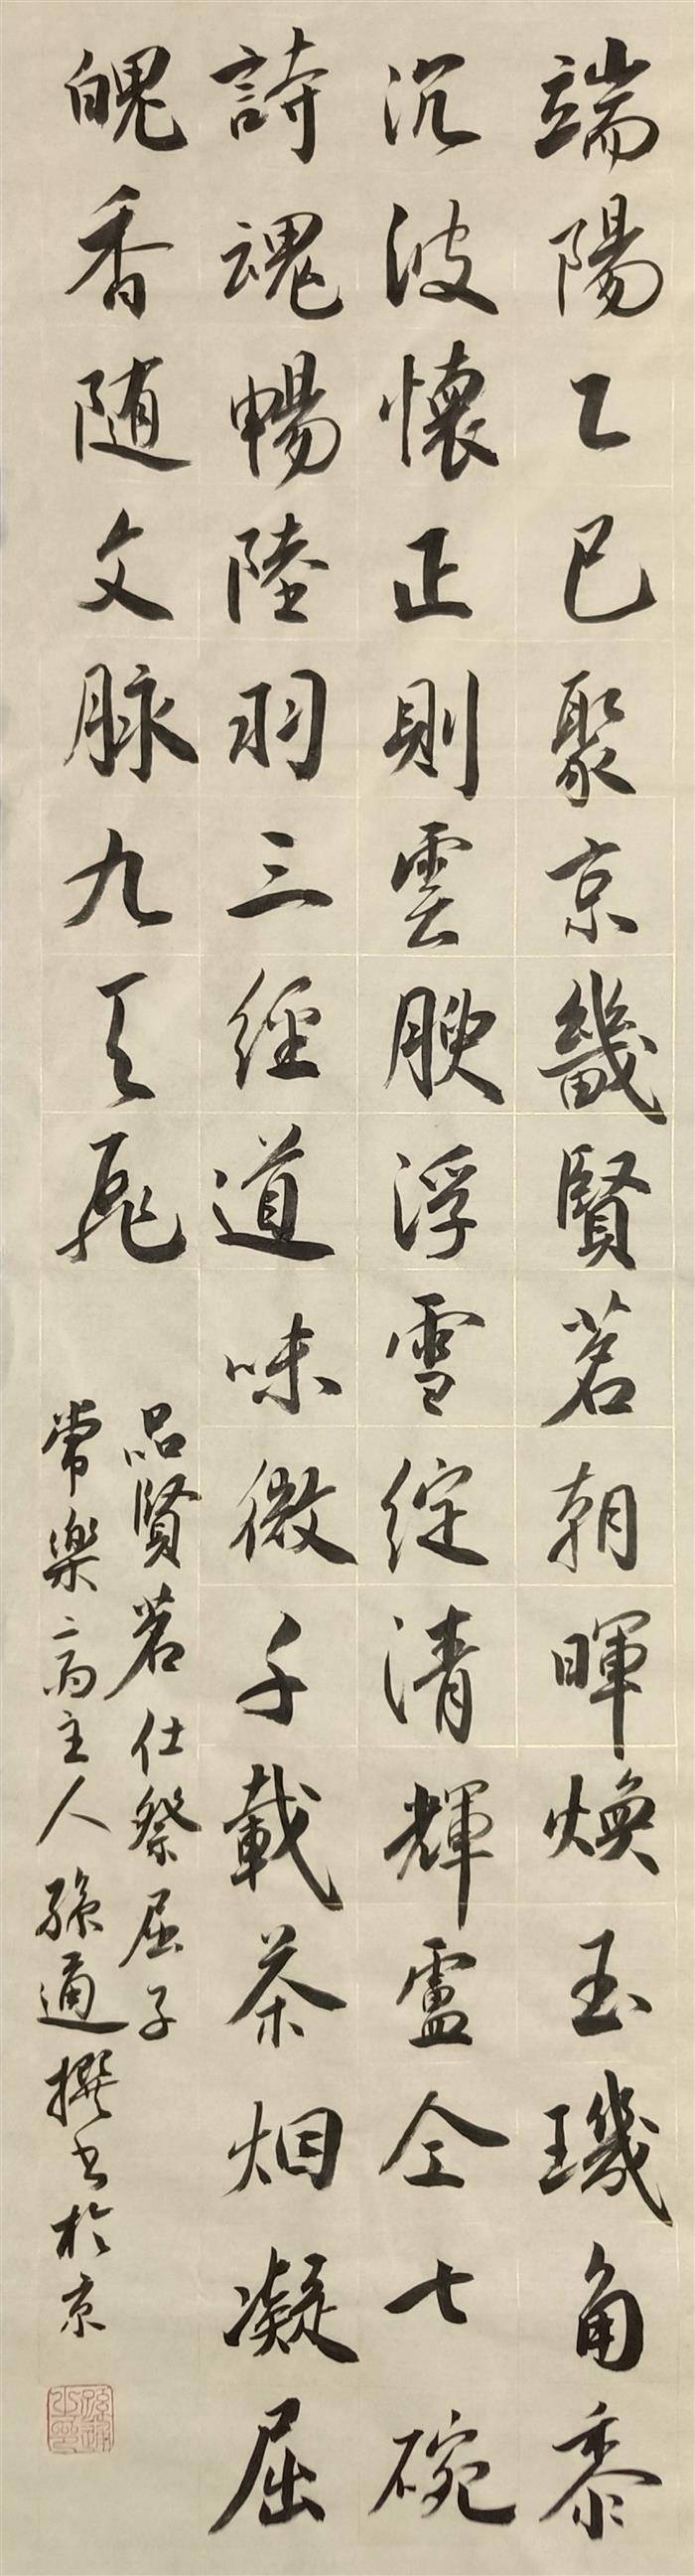 端陽乙巳聚京畿賢茗朝暉煥玉璣角黍
沉波懷正則雲腴浮雪綻清輝盧仝七碗
詩魂暢陸羽三經道味微千載茶烟凝屈
魄香随文脉九天飛
品賢茗仕祭屈子
常樂齋主人孫通撰书於京